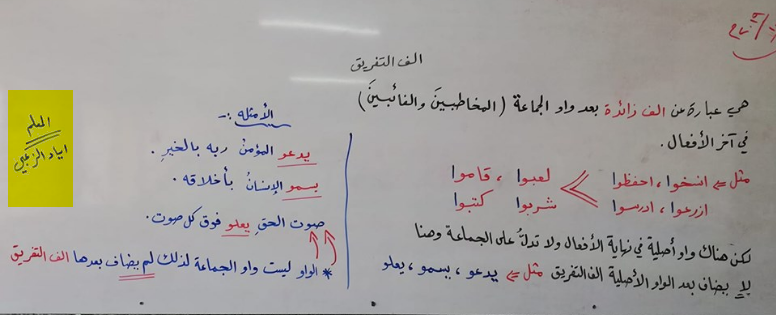 الف التفريق
هي عبارة عن الف زائدة بعد واو الجماعة (المخاطبينَ والغائبينَ)
في آخر الأفعال.
مثل انسخوا، احفظوا لعبوا، قاموا
ازرعوا، ادرسوا شربوا كتبوا
لكن هناك واو أصلية في نهاية الأفعال ولا تدلُ على الجماعة وهنا
لا يضاف بعد الواو الأصلية الف التفريق مثل يدعو، يسمو، يعلو
الأمثله :-
يدعو المؤمنُ ربه بالخيرِ.
يسمو الإنسانُ بأخلاقه.
صوت الحقِ يعلو فوق كل صوت.
* الواو ليست واو الجماعة لذلك لم يضاف بعدها الف التفريق
المعلم
اياد الزعبي